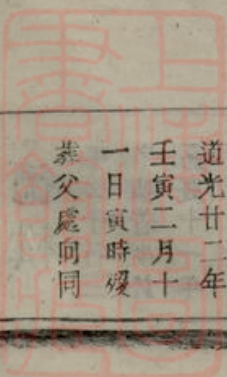 道光廿二年
壬寅二月十
一日寅時歿
葬父處向同